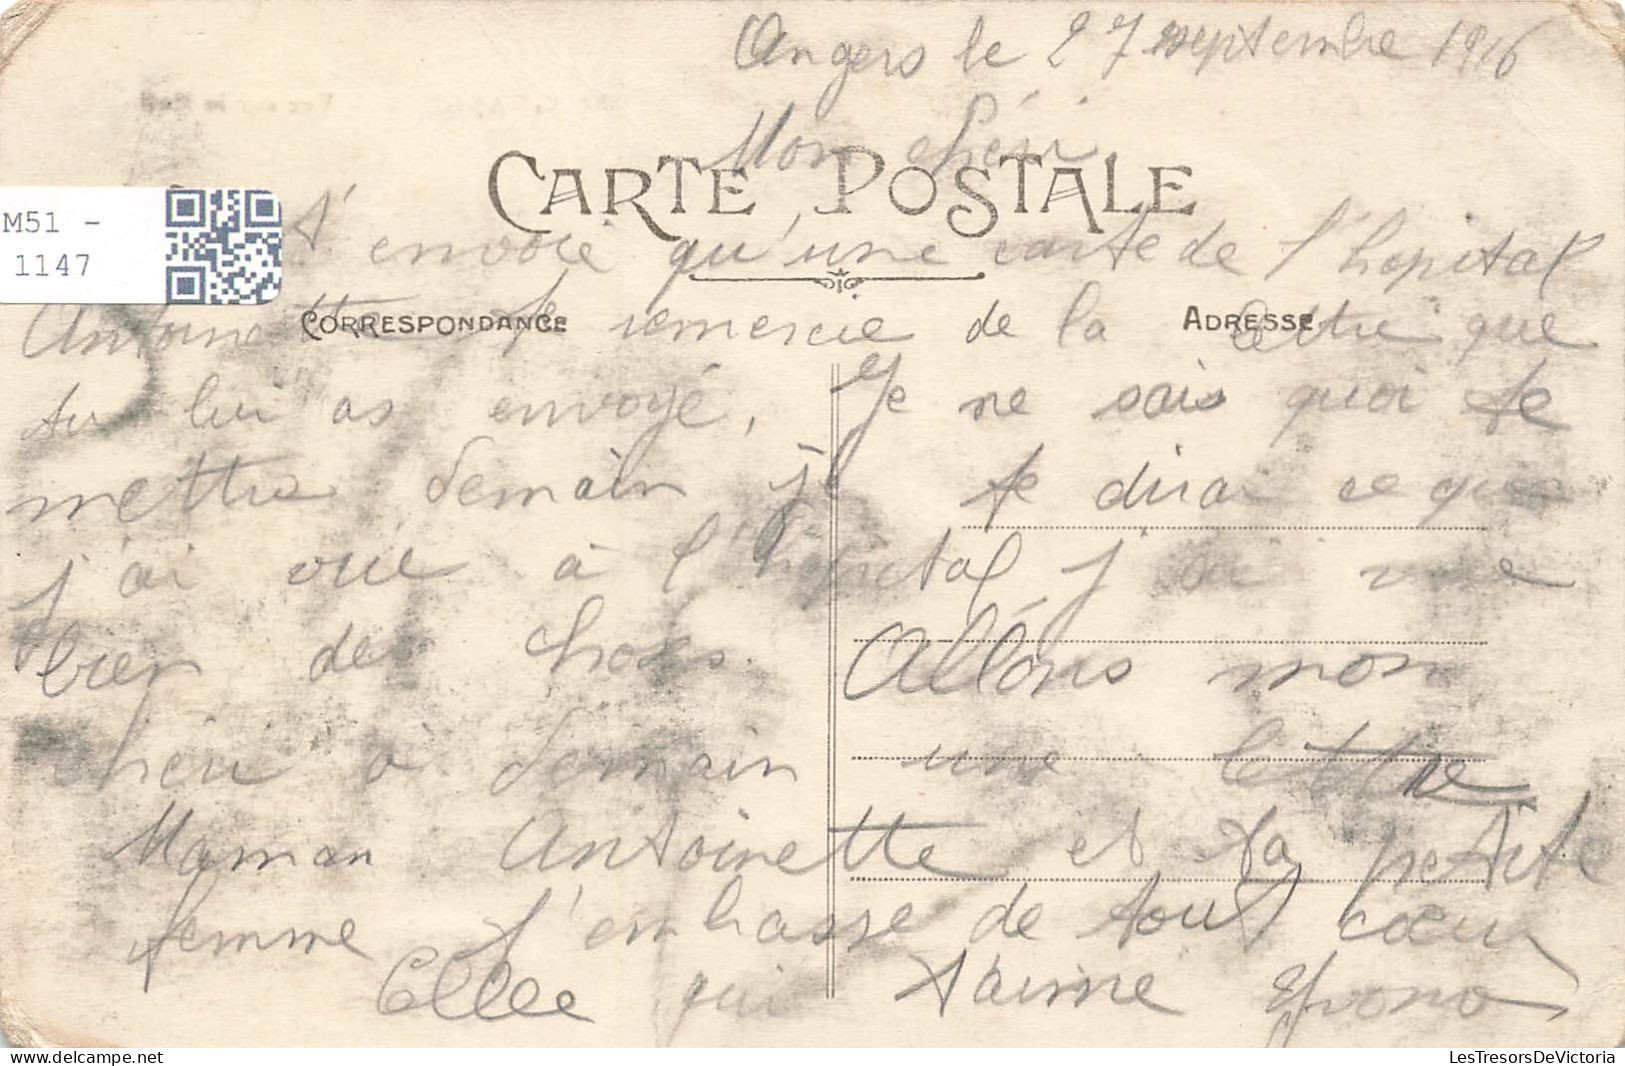 Angers le 27 septembre 1916
Mon chéri
CARTE POSTALE
M51 -
1147
t'envoie qu'une carte de l'hopital
CORRESPONDANCE
ADRESSE
Antoinette te remercie de la lettre que
tu lui as envoyé, Je ne sais quoi te
mettre demain je te dirai ce que
j'ai vue à l'hôpital j'ai vue
bien des choses. Allons mon
chéri à demain une lettre
Maman Antoinette et ta petite
femme t'embrasse de tout cœur
Celle qui t'aime
LesTresorsDeVictoria